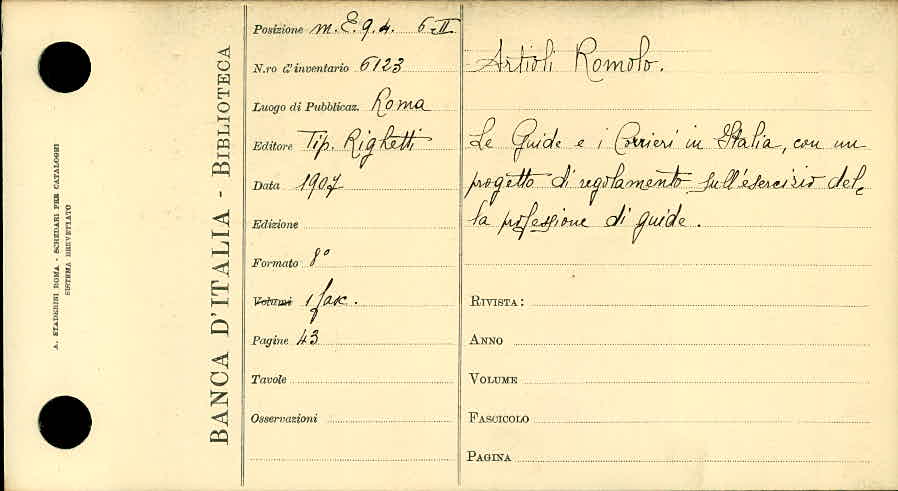 A. STADERINI ROMA - SCHEDARI PER CATALOGHI
SISTEMA BREVETTATO
BANCA D'ITALIA - BIBLIOTECA
Posizione m. E. 9. 4. 6-II
N.ro d'inventario 6123
Luogo di Pubblicaz. Roma
Editore Tip. Righetti
Data 1907
Edizione
Formato 8°
Volumi 1 fasc.
Pagine 43
Tavole
Osservazioni
Artioli Romolo.
Le Guide e i Corrieri in Italia, con un
progetto di regolamento sull'esercizio del
la professione di guide.
RIVISTA:
ANNO
VOLUME
FASCICOLO
PAGINA